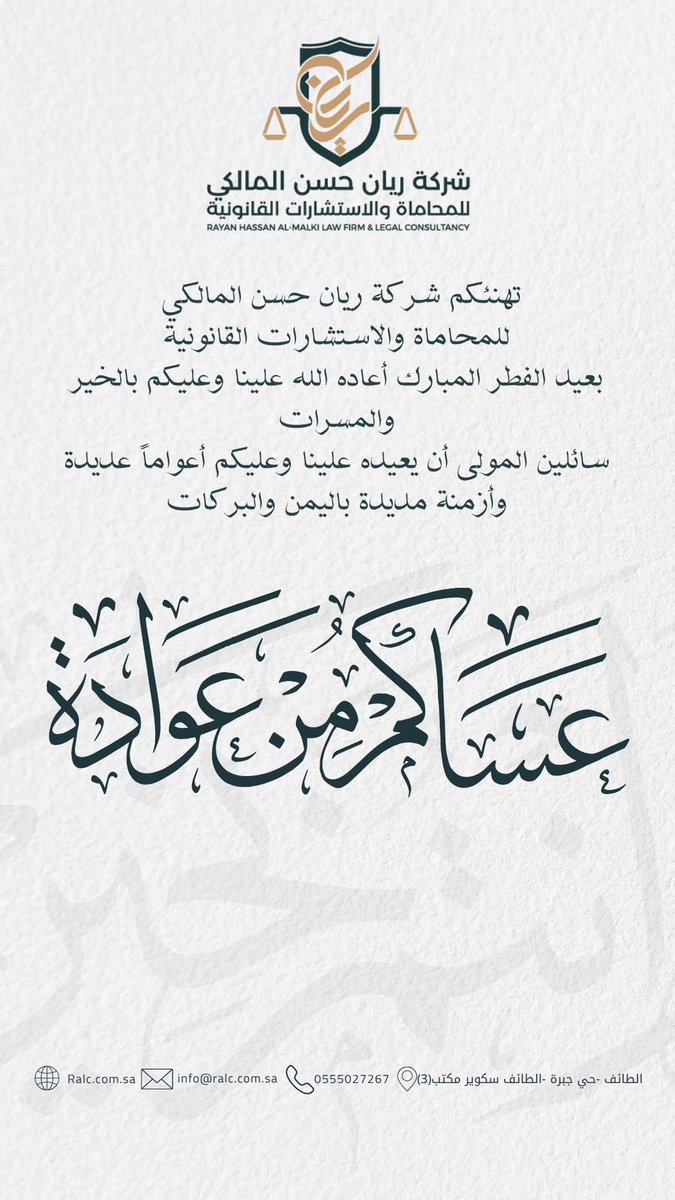 ريان
شركة ريان حسن المالكي
للمحاماة والاستشارات القانونية
RAYAN HASSAN AL-MALKI LAW FIRM & LEGAL CONSULTANCY
تهنئكم شركة ريان حسن المالكي
للمحاماة والاستشارات القانونية
بعيد الفطر المبارك أعاده الله علينا وعليكم بالخير
والمسرات
سائلين المولى أن يعيده علينا وعليكم أعواماً عديدة
وأزمنة مديدة باليمن والبركات
عَسَاكُم مِن عَوَادَة
Ralc.com.sa info@ralc.com.sa 0555027267 الطائف -حي جبرة -الطائف سكوير مكتب(3)